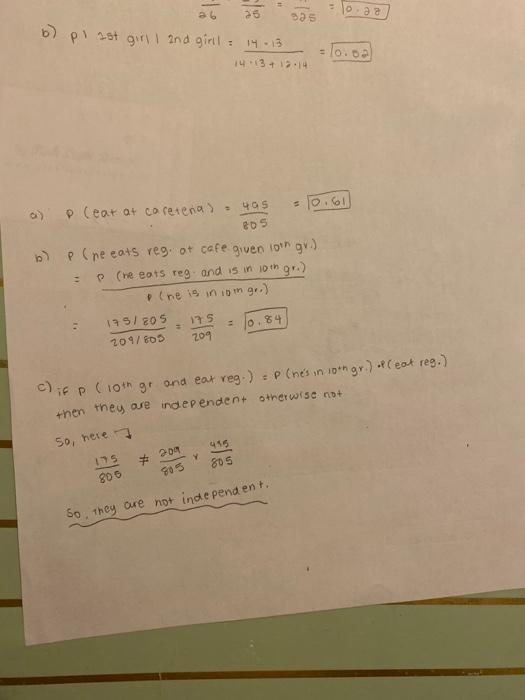 26 25 = 325 = 0.28
b) P( 1st girl | 2nd girl) = 14·13 / 14·13 + 12·14 = 0.52
a) P (eat at cafeteria) = 495 / 805 = 0.61
b) P (he eats reg. at cafe given 10th gr.)
= P (he eats reg. and is in 10th gr.) / P (he is in 10th gr.)
= 175/805 / 209/805 = 175 / 209 = 0.84
c) if P (10th gr and eat reg.) = P (he's in 10th gr.) • P(eat reg.)
then they are independent otherwise not
So, here ↴
175 / 805 ≠ 209 / 805 × 495 / 805
So, they are not independent.